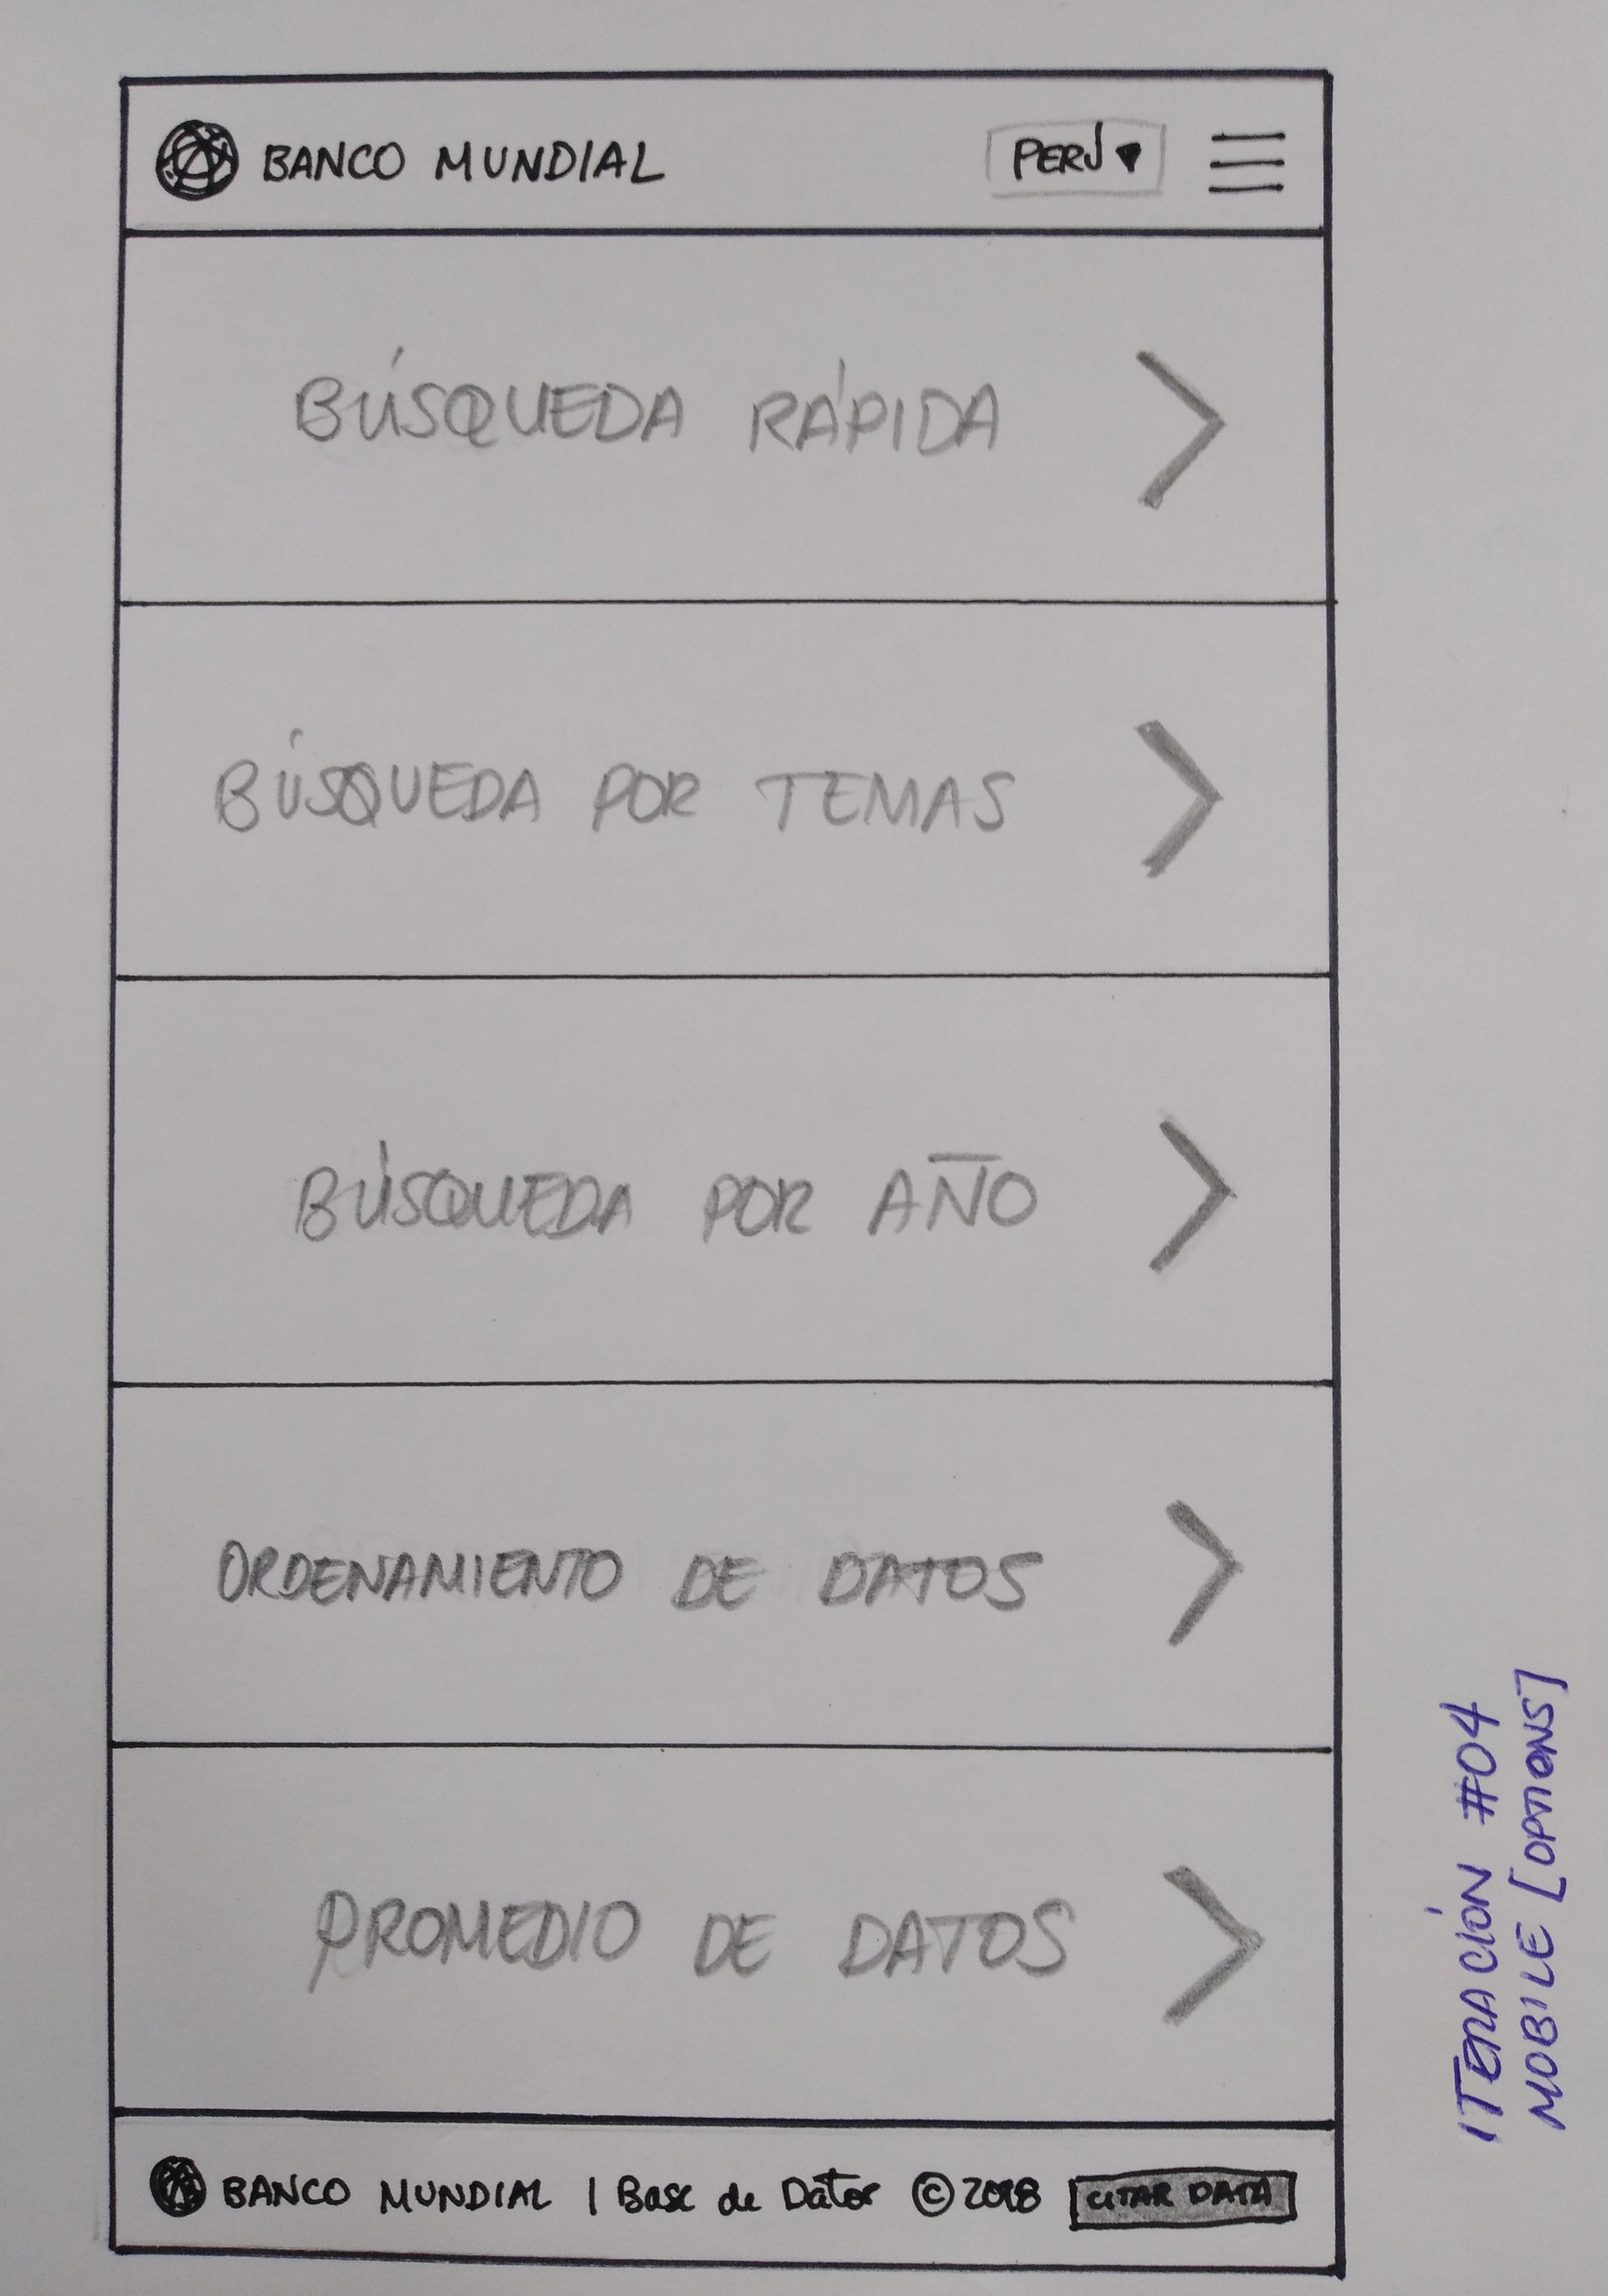 BANCO MUNDIAL PERÚ
BÚSQUEDA RÁPIDA
BÚSQUEDA POR TEMAS
BÚSQUEDA POR AÑO
ORDENAMIENTO DE DATOS
PROMEDIO DE DATOS
BANCO MUNDIAL | Base de Datos ©2018 CITAR DATA
ITERACIÓN #04
MOBILE [OPTIONS]